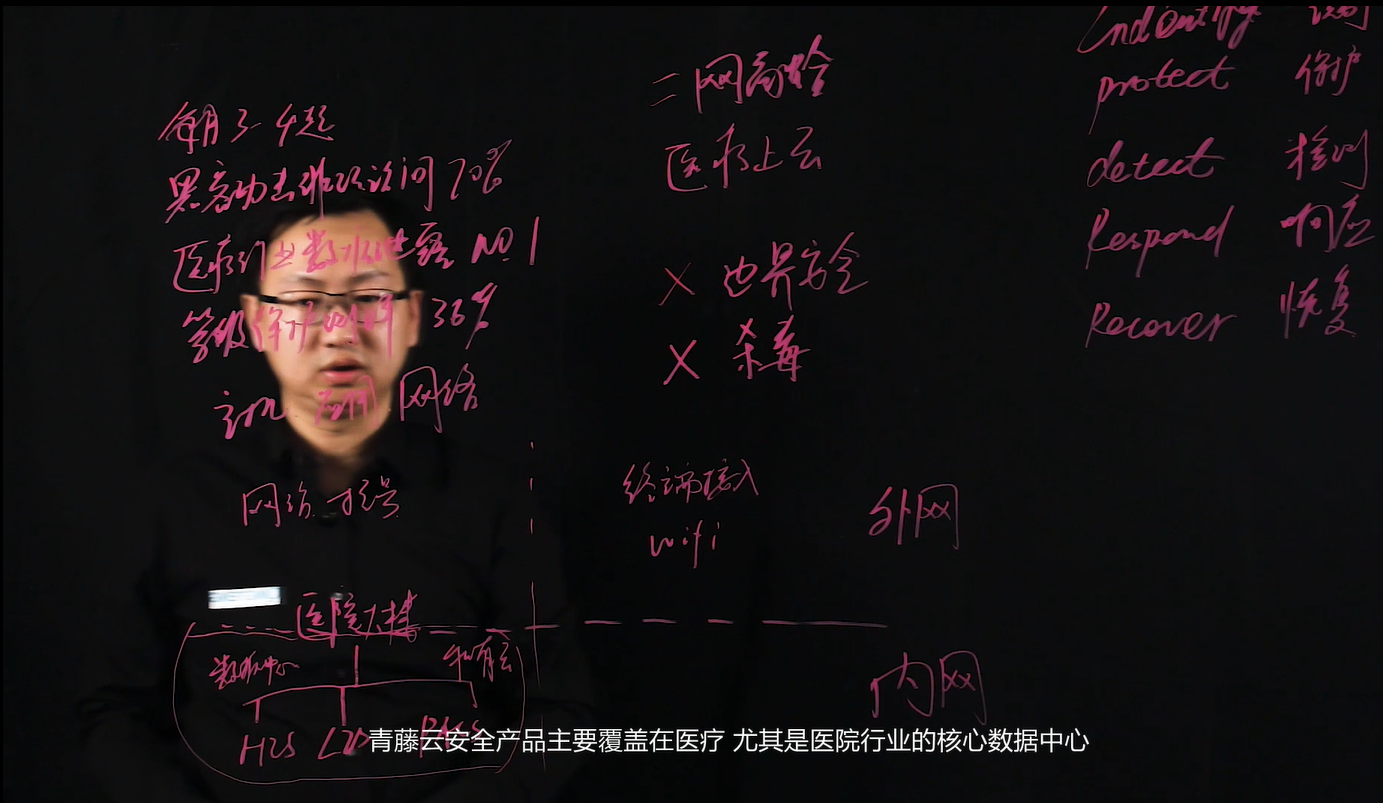 每月3-4起
黑客功击非法访问 70%
医疗行业数据泄露 NO.1
等级保护 36%
主机 应用 网络
网络
医院大楼
数据中心
私有云
HIS
二网融合
医疗上云
X 边界安全
X 杀毒
终端接入
wifi
外网
内网
protect 保护
detect 检测
Respond 响应
Recover 恢复
青藤云安全产品主要覆盖在医疗 尤其是医院行业的核心数据中心